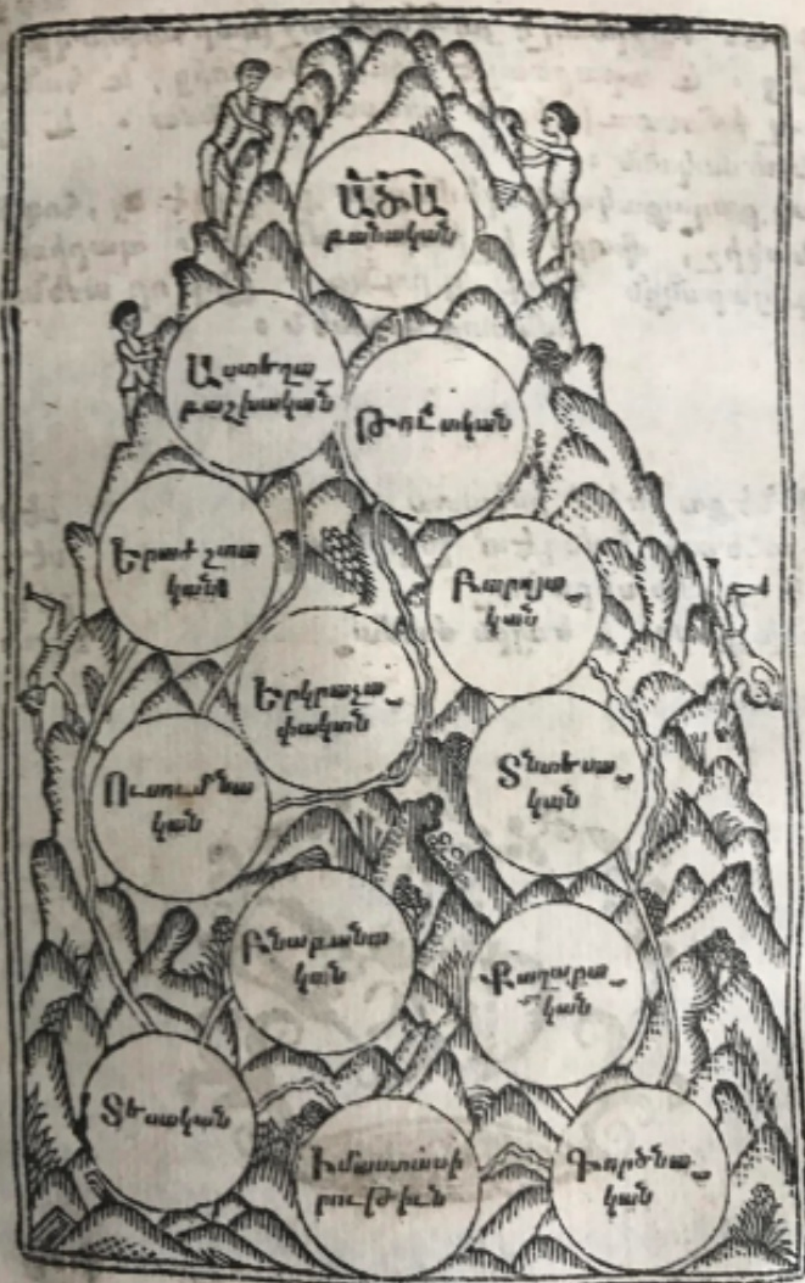 ԱԾԱ
բանական
Աստեղա
բաշխական
Թուական
Երաժշտա
կան
Բարոյա
կան
Երկրաչա
փական
Ուսումնա
կան
Տնտեսա
կան
Բնաբանա
կան
Քաղաքա
կան
Տեսական
Իմաստասի
րութիւն
Գործնա
կան